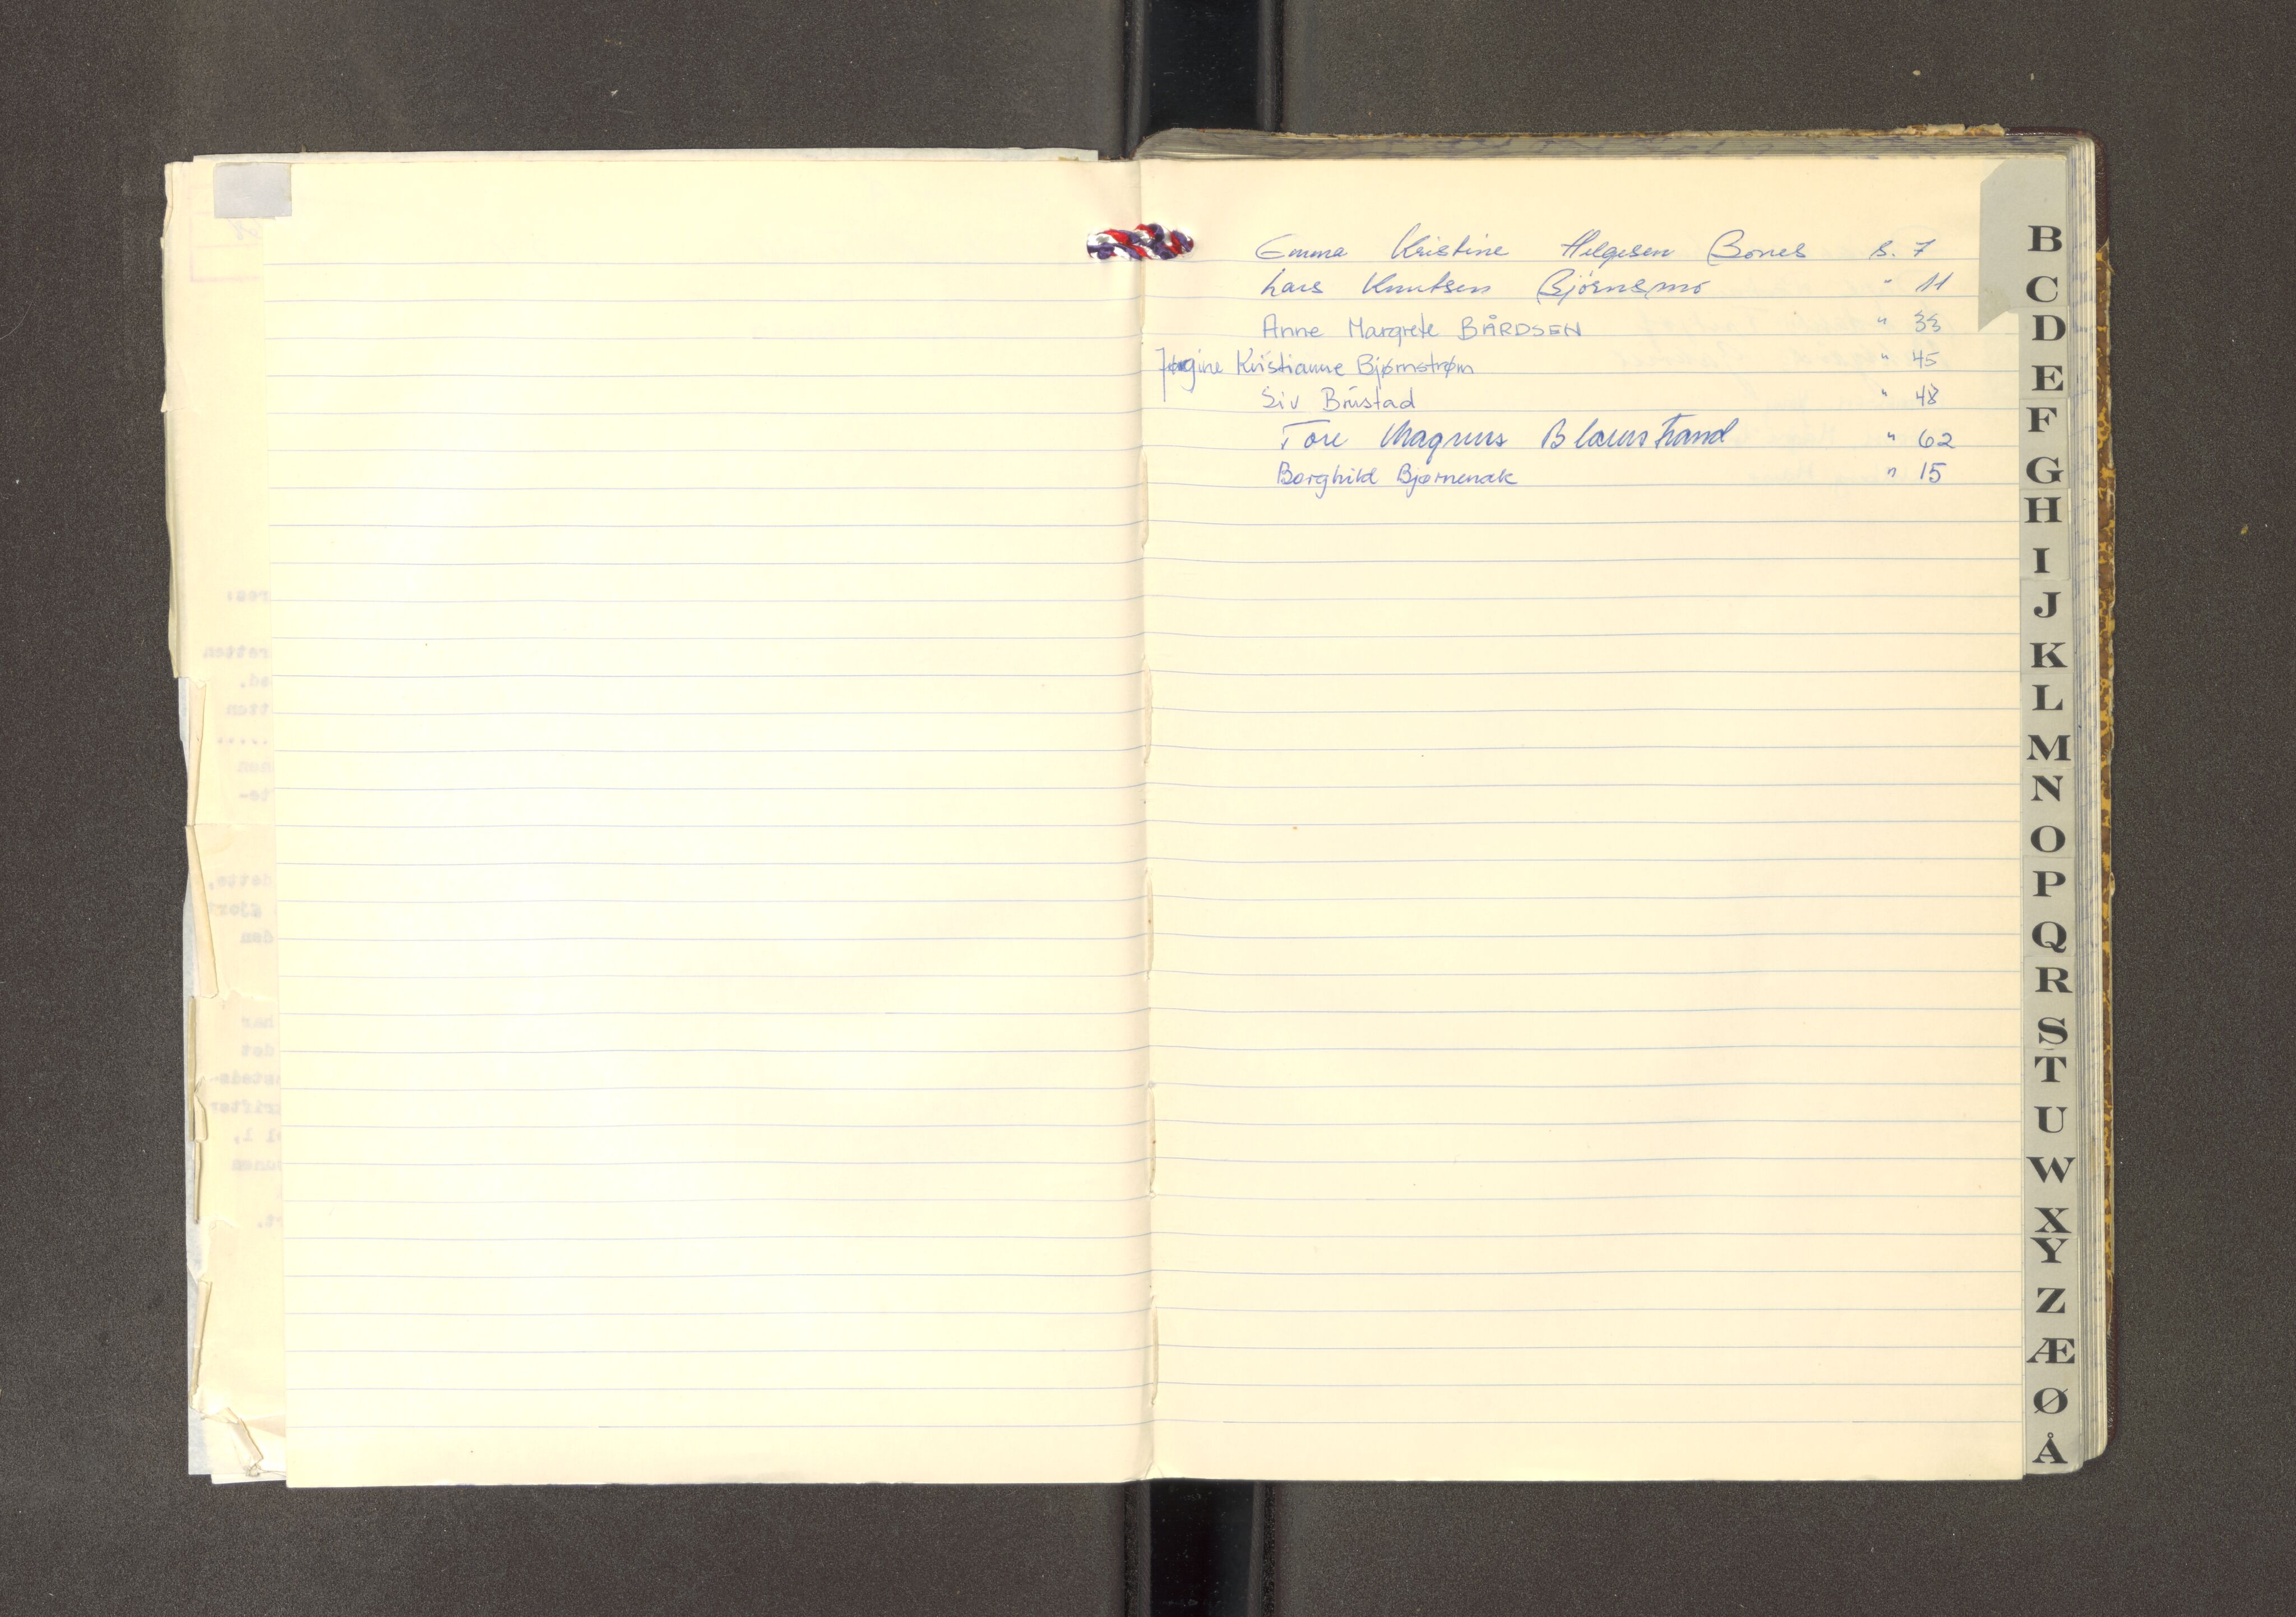 Emma Kristine Helgesen Bones s. 7
Lars Knutsen Bjørnsmo " 11
Anne Margrete BÅRDSEN " 33
Jørgine Kristianne Bjørnstrøm " 45
Siv Brustad " 48
Tore Magnus Blaunstrand " 62
Borghild Bjørnenak " 15
B
C
D
E
F
G
H
I
J
K
L
M
N
O
P
Q
R
S
T
U
W
X
Y
Z
Æ
Ø
Å